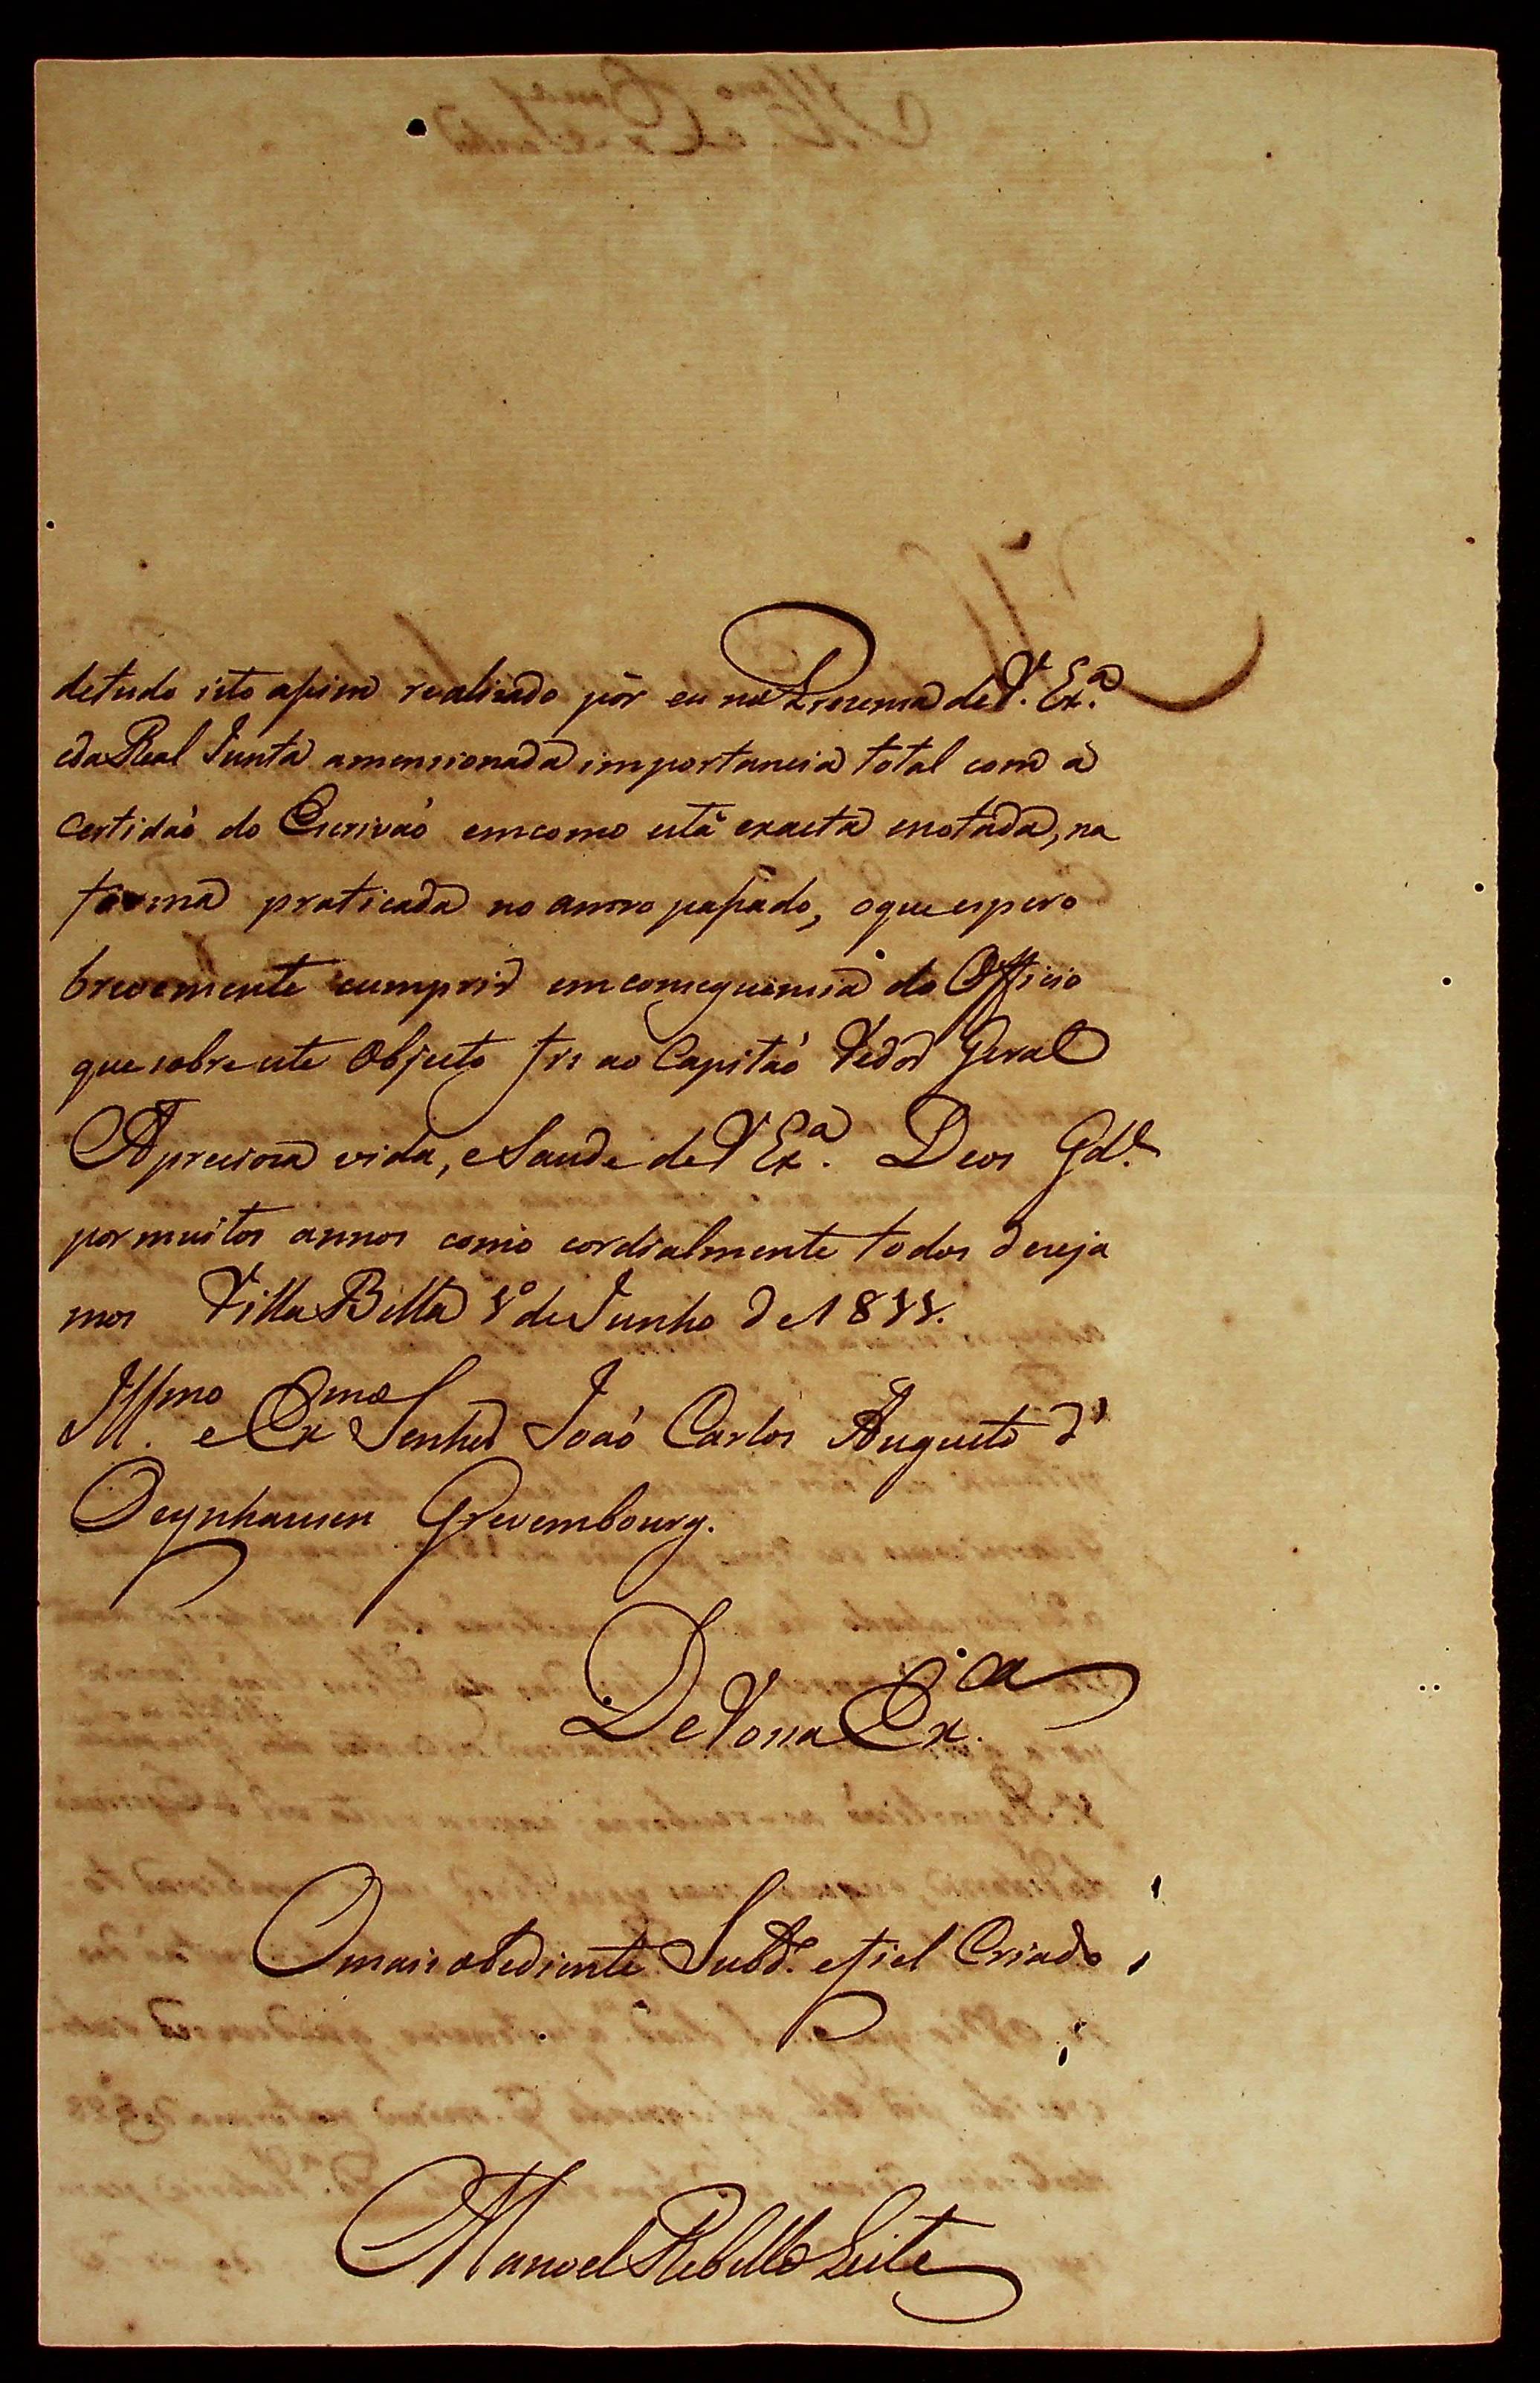 de tudo isto assim realizado pôr eu na Prezensa de V. Ex.ª
e da Real Junta a mensionada importancia total com a
Certidaõ do Escrivaõ em como está exacta e notada, na
forma praticada no anno passado, o que espero
brevemente cumprir em consequencia do Officio
que sobre este Objecto fiz ao Capitaõ Vedor Geral
A preciosa vida, e Saude de V Ex.ª Deos Gd.e
por muitos annos como cordialmente todos deseja
mos Villa Bella 1º de Junho de 1811.
Ill.mo e Ex.mo Senhor Joaõ Carlos Augusto d'
Oeynhausen Grevembourg.
De Vossa Ex.ª
O mais obediente Subd.º e fiel Criado
Manoel Rebello Leite